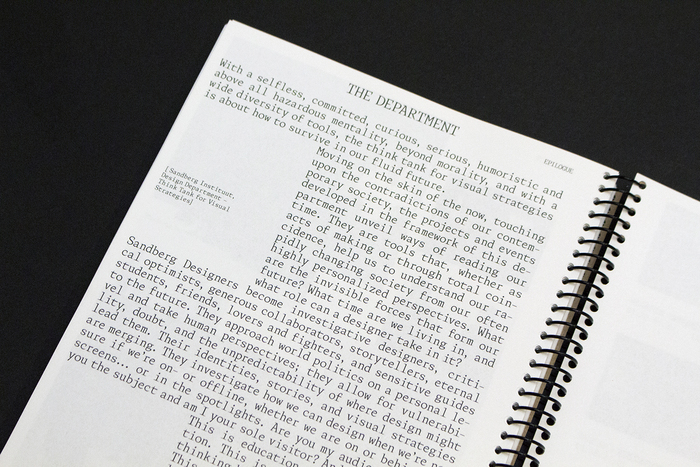 THE DEPARTMENT
EPILOGUE
With a selfless, committed, curious, serious, humoristic and
above all hazardous mentality, beyond morality, and with a
wide diversity of tools, the think tank for visual strategies
is about how to survive in our fluid future.
Moving on the skin of the now, touching
upon the contradictions of our contem-
porary society, the projects and events
developed in the framework of this de-
partment unveil ways of reading our
time. They are tools that, whether as
acts of making or through total coin-
cidence, help us to understand our ra-
pidly changing society from our often
highly personalized perspectives. What
are the invisible forces that form our
future? What time are we living in, and
what role can a designer take in it?
[Sandberg Instituut,
Design Department –
Think Tank for Visual
Strategies]
Sandberg Designers become investigative designers, criti-
cal optimists, generous collaborators, storytellers, eternal
students, friends, lovers and fighters, and sensitive guides
to the future. They approach world politics on a personal le-
vel and take human perspectives; they allow for vulnerabi-
lity, doubt, and the unpredictability of where design might
lead them. Their identities, stories, and visual strategies
are merging. They investigate how we can design when we're not
sure if we're on- or offline, whether we are on or behind
screens... or in the spotlights. Are you my audience
you the subject and am I your sole visitor? And
This is education
tion. This is
thinking
This